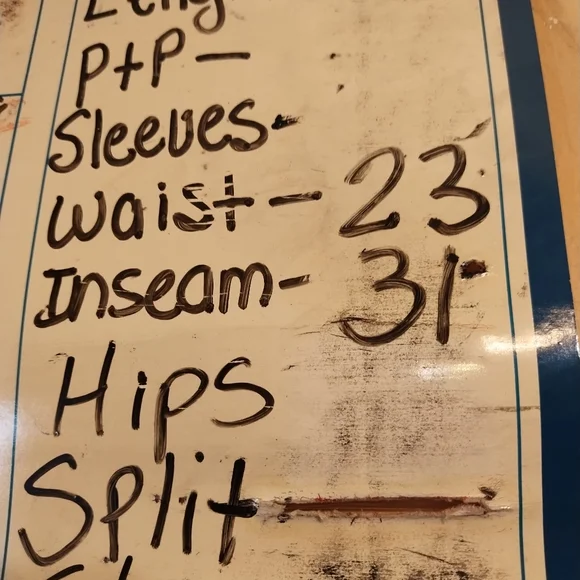 P+P -
Sleeves-
Waist - 23
Inseam- 31
Hips
Split